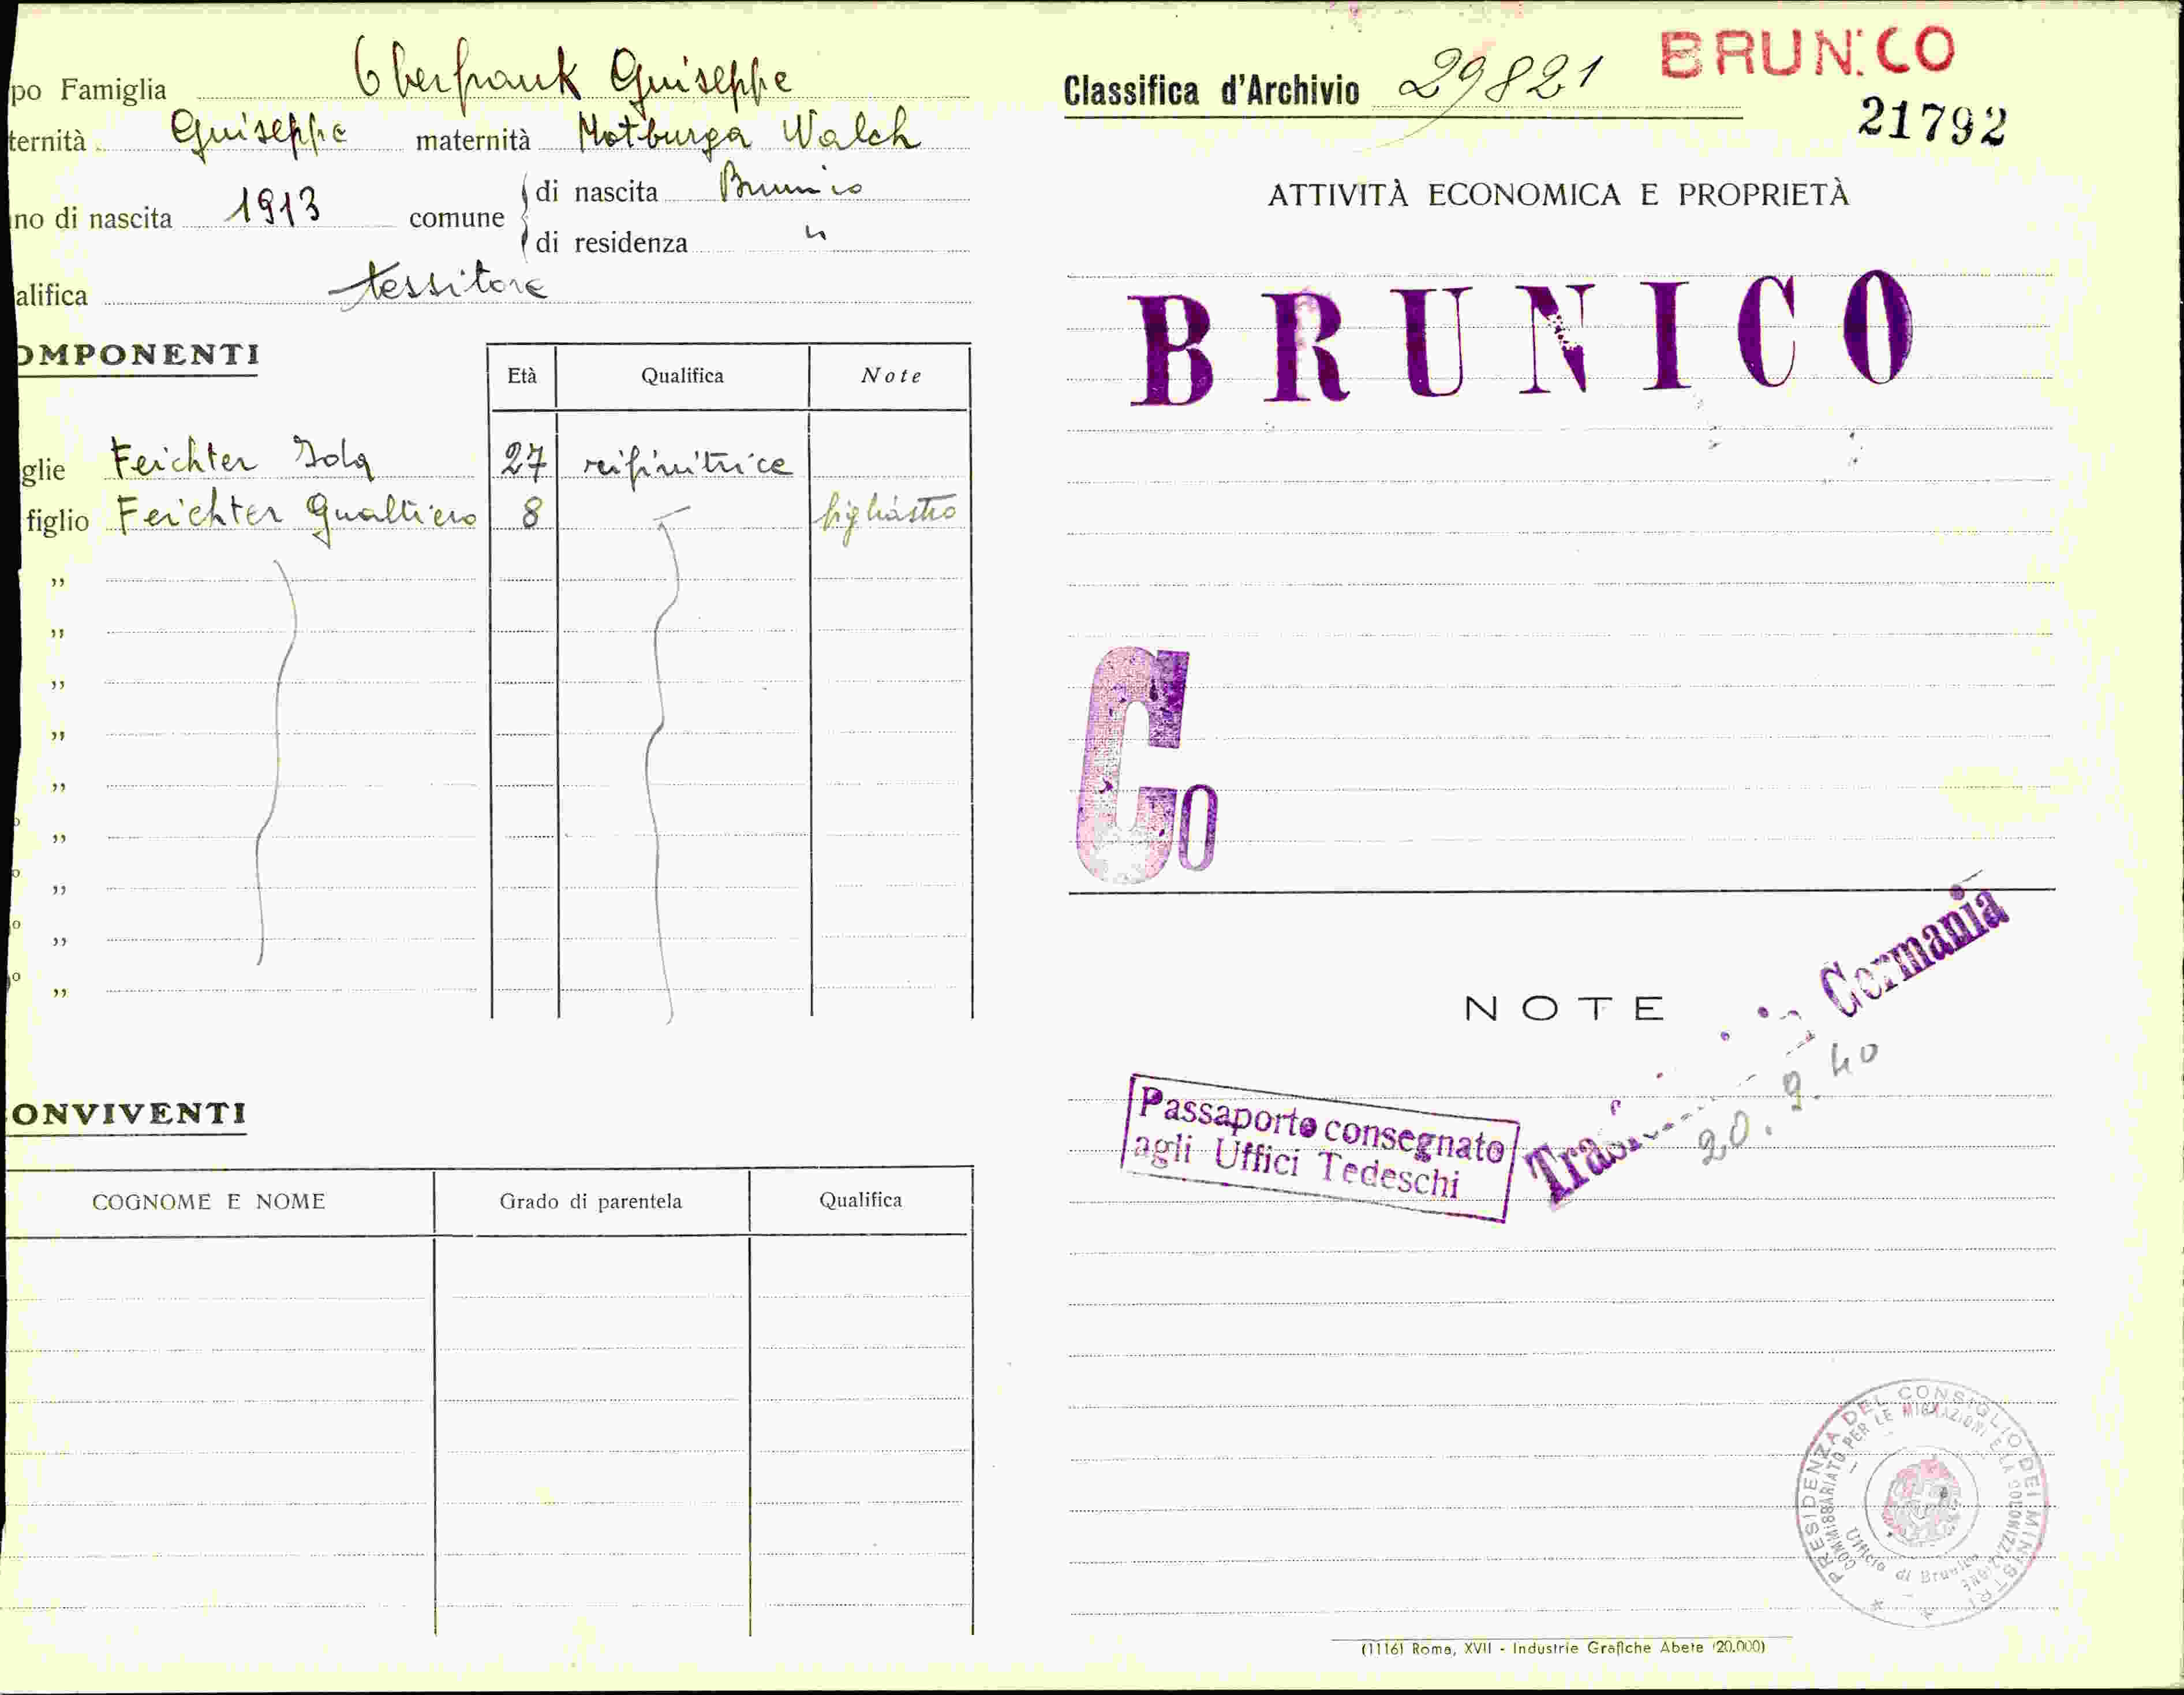 po Famiglia Oberfrank Giuseppe
ternità Giuseppe maternità Notburga Walch
no di nascita 1913 comune di nascita Brunico
di residenza "
alifica tessitore
OMPONENTI
Età Qualifica Note
glie Feichter Ida 27 reifinitrice
figlio Feichter Gualtiero 8 figliastro
"
"
"
"
"
"
"
"
"
ONVIVENTI
COGNOME E NOME Grado di parentela Qualifica
Classifica d'Archivio 29821 BRUNICO
21792
ATTIVITÀ ECONOMICA E PROPRIETÀ
BRUNICO
Co
NOTE
Germania
20.9.40
Passaporto consegnato
agli Uffici Tedeschi
PRESIDENZA DEL CONSIGLIO DEI MINISTRI
COMMISSARIATO PER LE MIGRAZIONI E LA COLONIZZAZIONE
Ufficio di Brunico
(1116) Roma, XVII - Industrie Grafiche Abete (20.000)